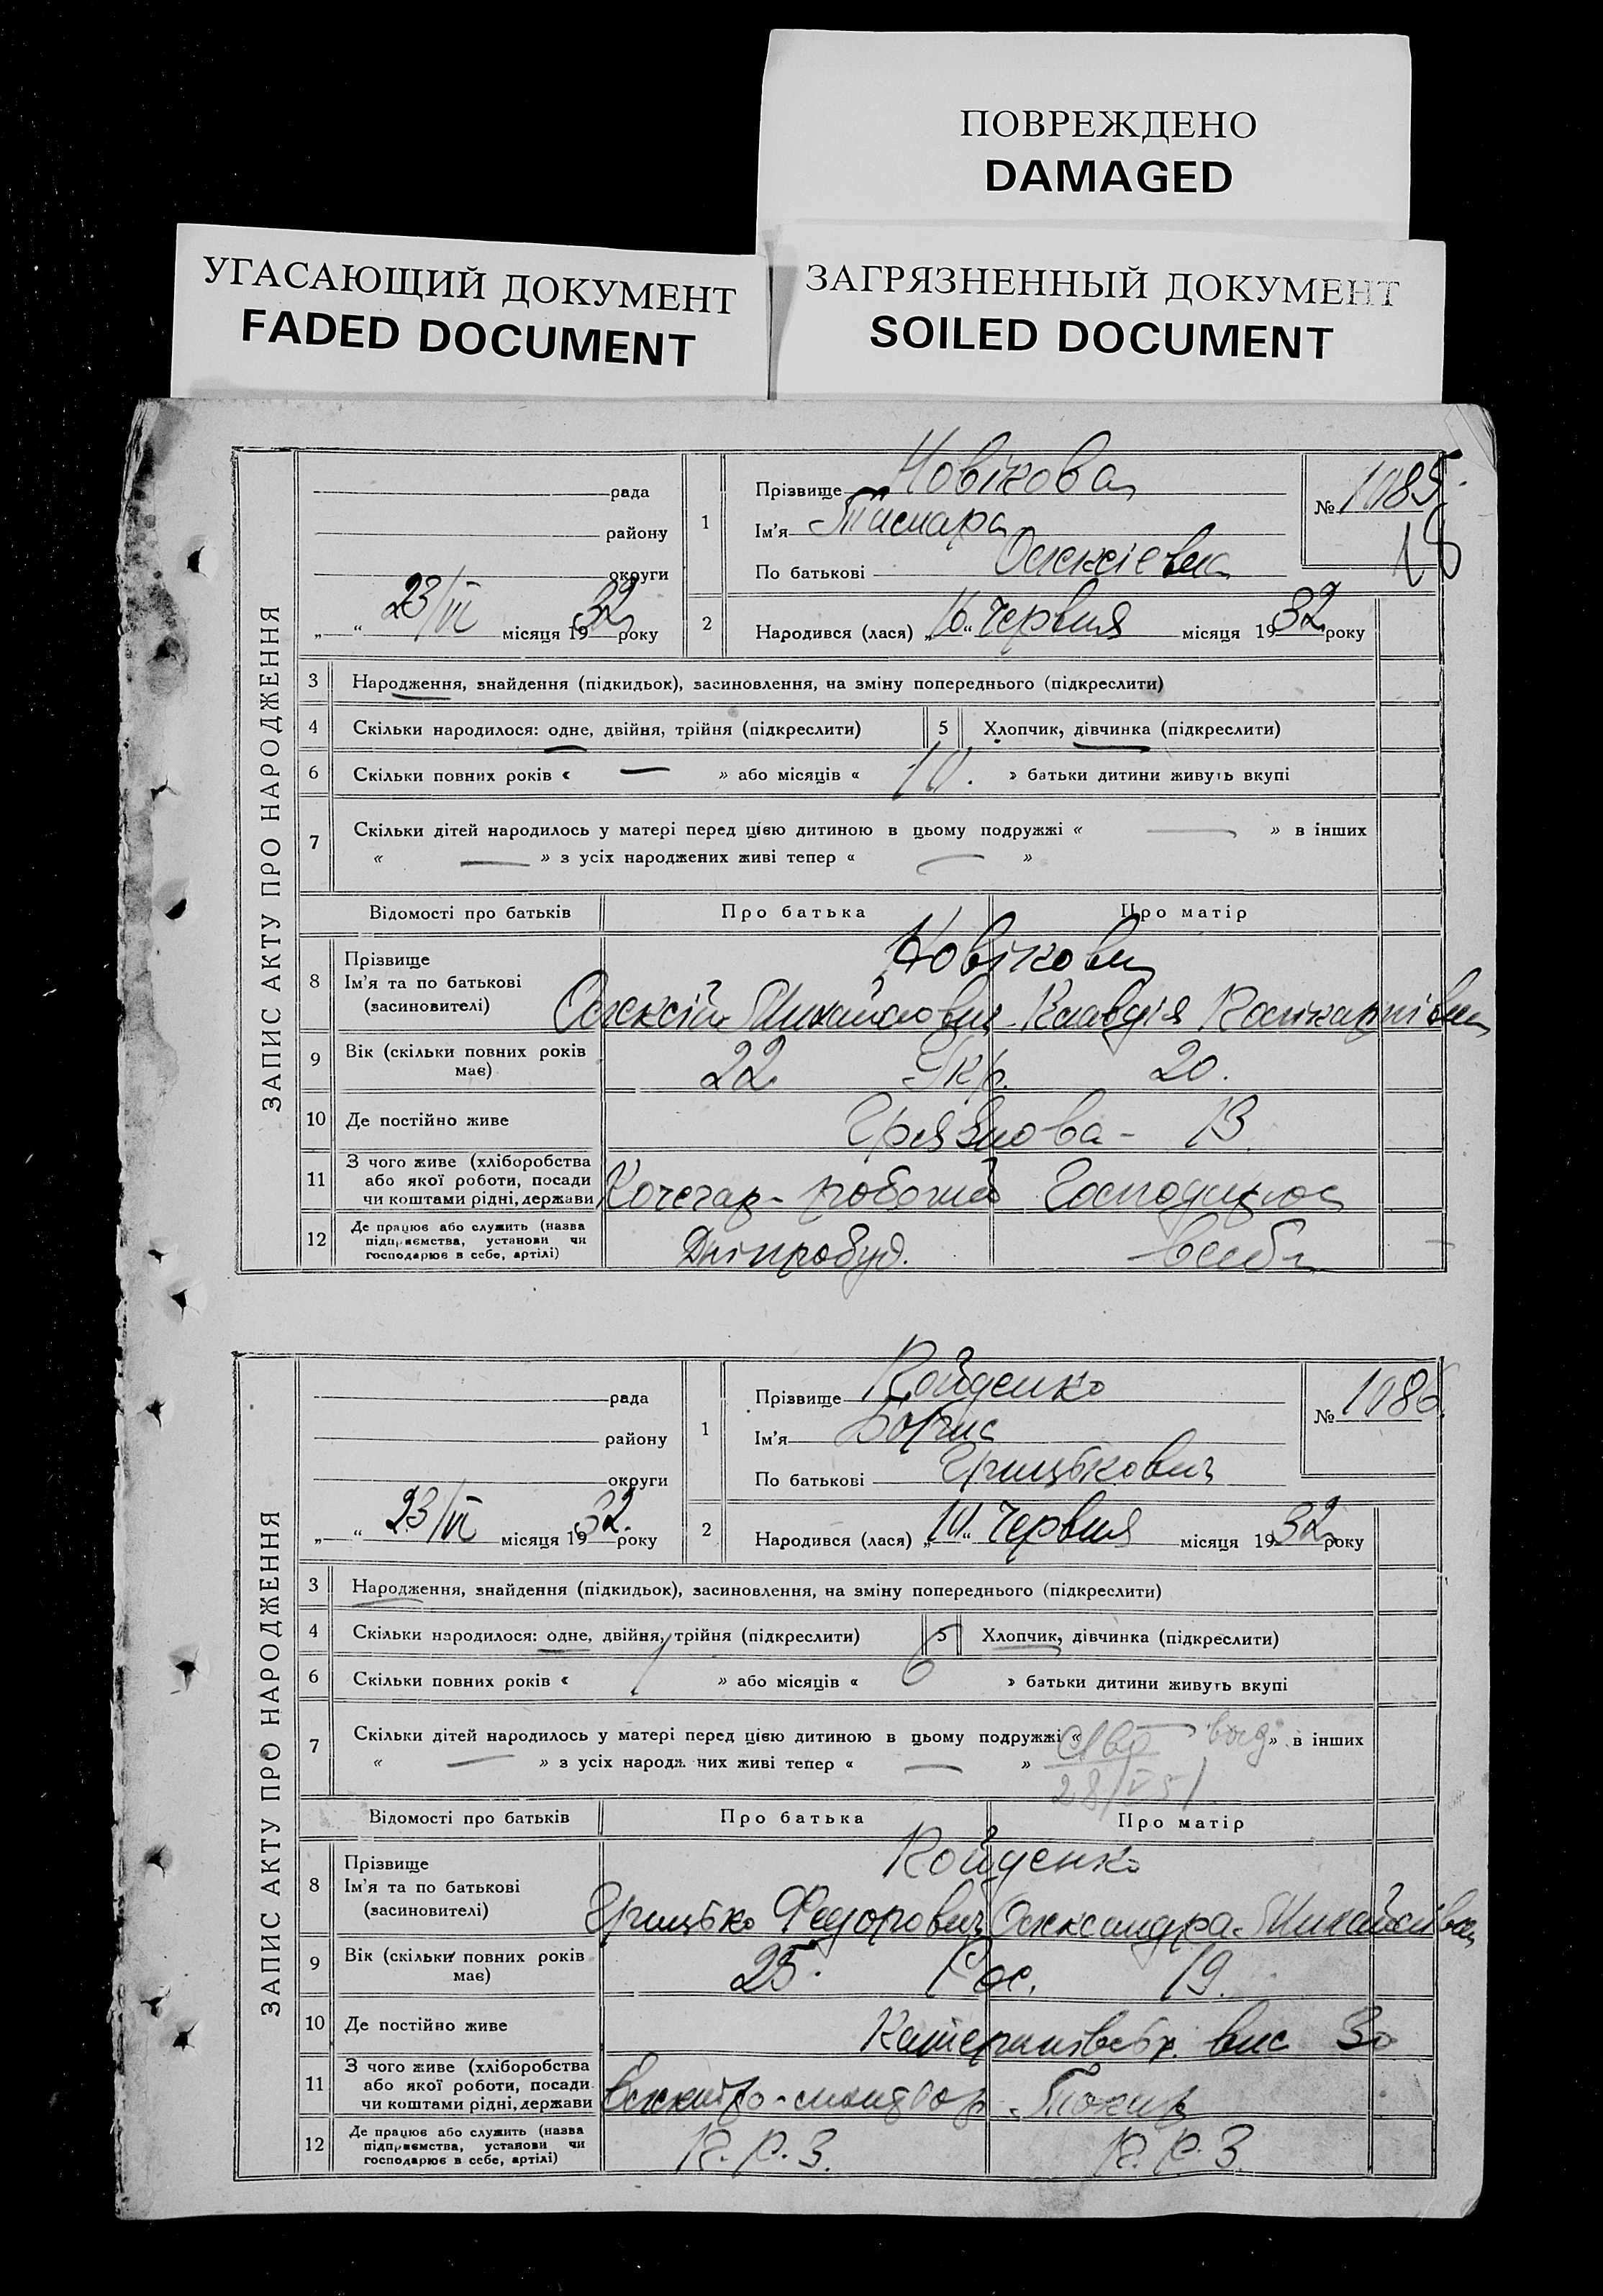 ПОВРЕЖДЕНО
DAMAGED
УГАСАЮЩИЙ ДОКУМЕНТ
FADED DOCUMENT
ЗАГРЯЗНЕННЫЙ ДОКУМЕНТ
SOILED DOCUMENT
ЗАПИС АКТУ ПРО НАРОДЖЕННЯ
рада
району
округи
„ “ 23/VI місяця 1932 року
1 Прізвище Новікова
Ім'я Тамара
По батькові Олексієвна
№ 1085
18
2 Народився (лася) „16“ Червня місяця 1932 року
3 Народження, знайдення (підкидьок), засиновлення, на зміну попереднього (підкреслити)
4 Скільки народилося: одне, двійня, трійня (підкреслити) 5 Хлопчик, дівчинка (підкреслити)
6 Скільки повних років « — » або місяців « 10. » батьки дитини живуть вкупі
7 Скільки дітей народилось у матері перед цією дитиною в цьому подружжі « — » в інших
« — » з усіх народжених живі тепер « — »
Відомості про батьків Про батька Про матір
8 Прізвище
Ім'я та по батькові
(засиновителі)
Новікови
Олексій Михайлович Клавдія Полікарпівна
9 Вік (скільки повних років має) 22 Укр. 20.
10 Де постійно живе Грязнова - 13
11 З чого живе (хліборобства
або якої роботи, посади
чи коштами рідні, держави
Кочегар - робочий Господарює
12 Де працює або служить (назва
підприємства, установи чи
господарює в себе, артілі)
Дніпробуд. в себе
ЗАПИС АКТУ ПРО НАРОДЖЕННЯ
рада
району
округи
„ “ 23/VI місяця 1932. року
1 Прізвище Койденко
Ім'я Борис
По батькові Грицькович
№ 1086.
2 Народився (лася) „10“ Червня місяця 1932 року
3 Народження, знайдення (підкидьок), засиновлення, на зміну попереднього (підкреслити)
4 Скільки народилося: одне, двійня, трійня (підкреслити) 5 Хлопчик, дівчинка (підкреслити)
6 Скільки повних років « 1 » або місяців « 6 » батьки дитини живуть вкупі
7 Скільки дітей народилось у матері перед цією дитиною в цьому подружжі « — » в інших
« — » з усіх народж них живі тепер « — »
28/V 51
Відомості про батьків Про батька Про матір
8 Прізвище
Ім'я та по батькові
(засиновителі)
Койденко
Грицько Федорович Олександра Михайлівна
9 Вік (скільки повних років має) 25. Рос. 19.
10 Де постійно живе Катеринівськ. вис 30
11 З чого живе (хліборобства
або якої роботи, посади
чи коштами рідні, держави
Електро-монтьор Токар
12 Де працює або служить (назва
підприємства, установи чи
господарює в себе, артілі)
П. Р. З. П. Р. З.